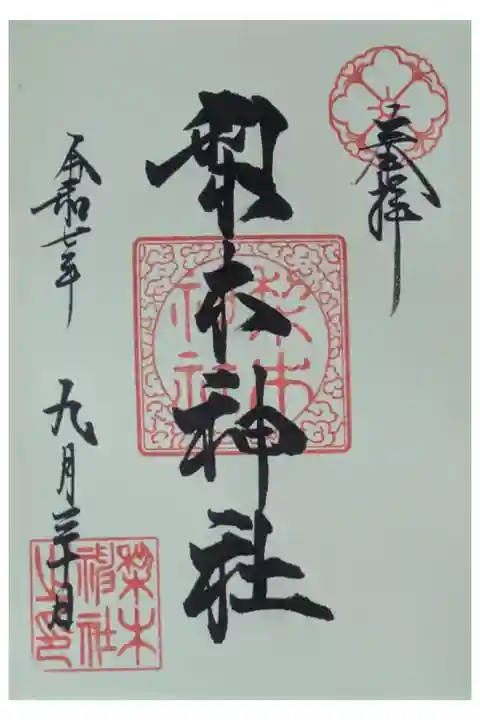 奉拝
梨木神社
梨木
神社
令和七年
九月三十日
梨木
神社
之印